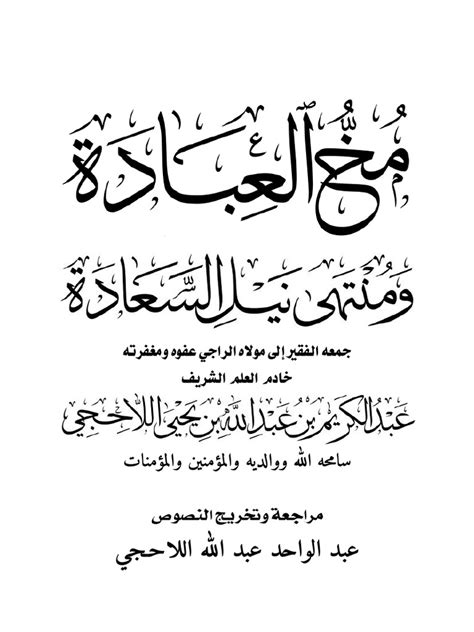 مُخُّ العِبَادَة
وَمُنْتَهَى نَيْلِ السَّعَادَة
جمعه الفقير إلى مولاه الراجي عفوه ومغفرته
خادم العلم الشريف
عَبْدُ الكَرِيمِ بْنُ عَبْدِ اللَّهِ بْنِ يَحْيَى اللَّاحِجِي
سامحه الله ووالديه والمؤمنين والمؤمنات
مراجعة وتخريج النصوص
عبد الواحد عبد الله اللاحجي